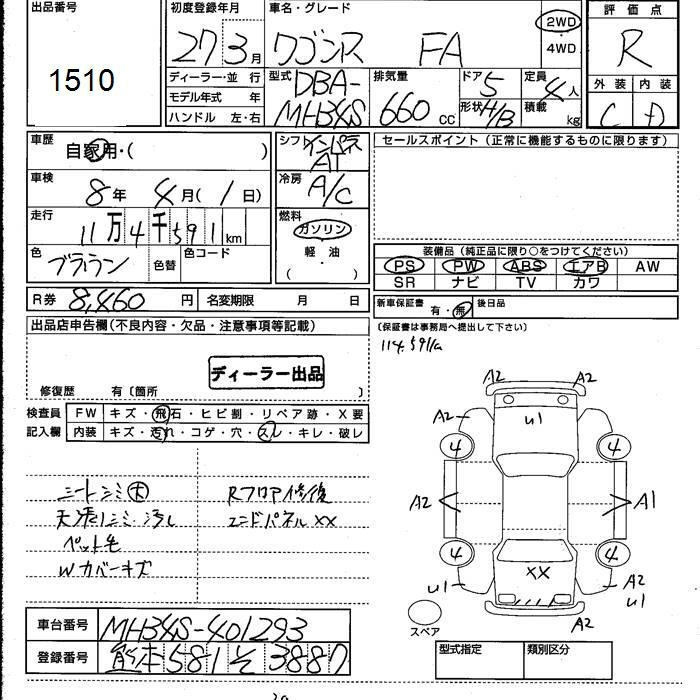 出品番号
1510
初度登録年月
27 3月
車名・グレード
ワゴンR FA
2WD
・
4WD
評価点
R
ディーラー・並行
モデル年式 年
ハンドル 左・右
型式
DBA-
MH34S
排気量
660 cc
ドア 5
形状 H/B
定員 4人
積載 kg
外装 内装
C D
車歴
自家用・( )
シフト
インパネ
AT
セールスポイント (正常に機能するものに限ります)
車検
8年 4月(1日)
冷房
A/C
走行
11万4千591km
燃料
ガソリン
・
軽油
( )
色
ブラウン
色替
色コード
装備品 (純正品に限り○をつけてください)
PS PW ABS エアB AW
SR ナビ TV カワ
R券 8,460円 名変期限 月 日
新車保証書 有・無 後日品
出品店申告欄(不良内容・欠品・注意事項等記載)
(保証書は事務局へ提出して下さい)
114,591
ディーラー出品
修復歴 有〔箇所 〕
検査員 FW キズ・飛石・ヒビ割・リペア跡・X要
記入欄 内装 キズ・汚れ・コゲ・穴・スレ・キレ・破レ
シートシミ大
Rフロア修復
天張りシミ・汚れ
エンドパネルXX
ペット毛
Wカバーキズ
A2 A2
A2 U1
4 4
A2 A1
4 4
XX
U1 A2
U1
A2
スペア
車台番号 MH34S-401293
登録番号 熊本581そ3887
型式指定 類別区分